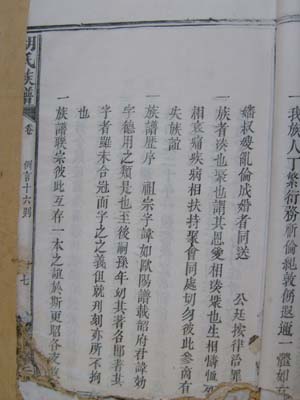 一我族人丁繁衍務祈倫規敦
嬸叔嫂亂倫成婚者同送　公廷按律治罪
一族者湊也聚也謂其恩愛相湊聚也生相愛死
相哀痛疾病相扶持聚會同處切勿彼此參商有
失族誼
一族譜歷序　祖宗字諱如歐陽譜載韶府君諱効
字德用之類是也至後嗣孫年幼其著名郎者其
字者羅未合冠而字之之義但就列刻亦所不拘
也
一族譜聯宗彼此互存一本之誼於斯更昭各支
胡氏族譜
卷
例言十六則
七